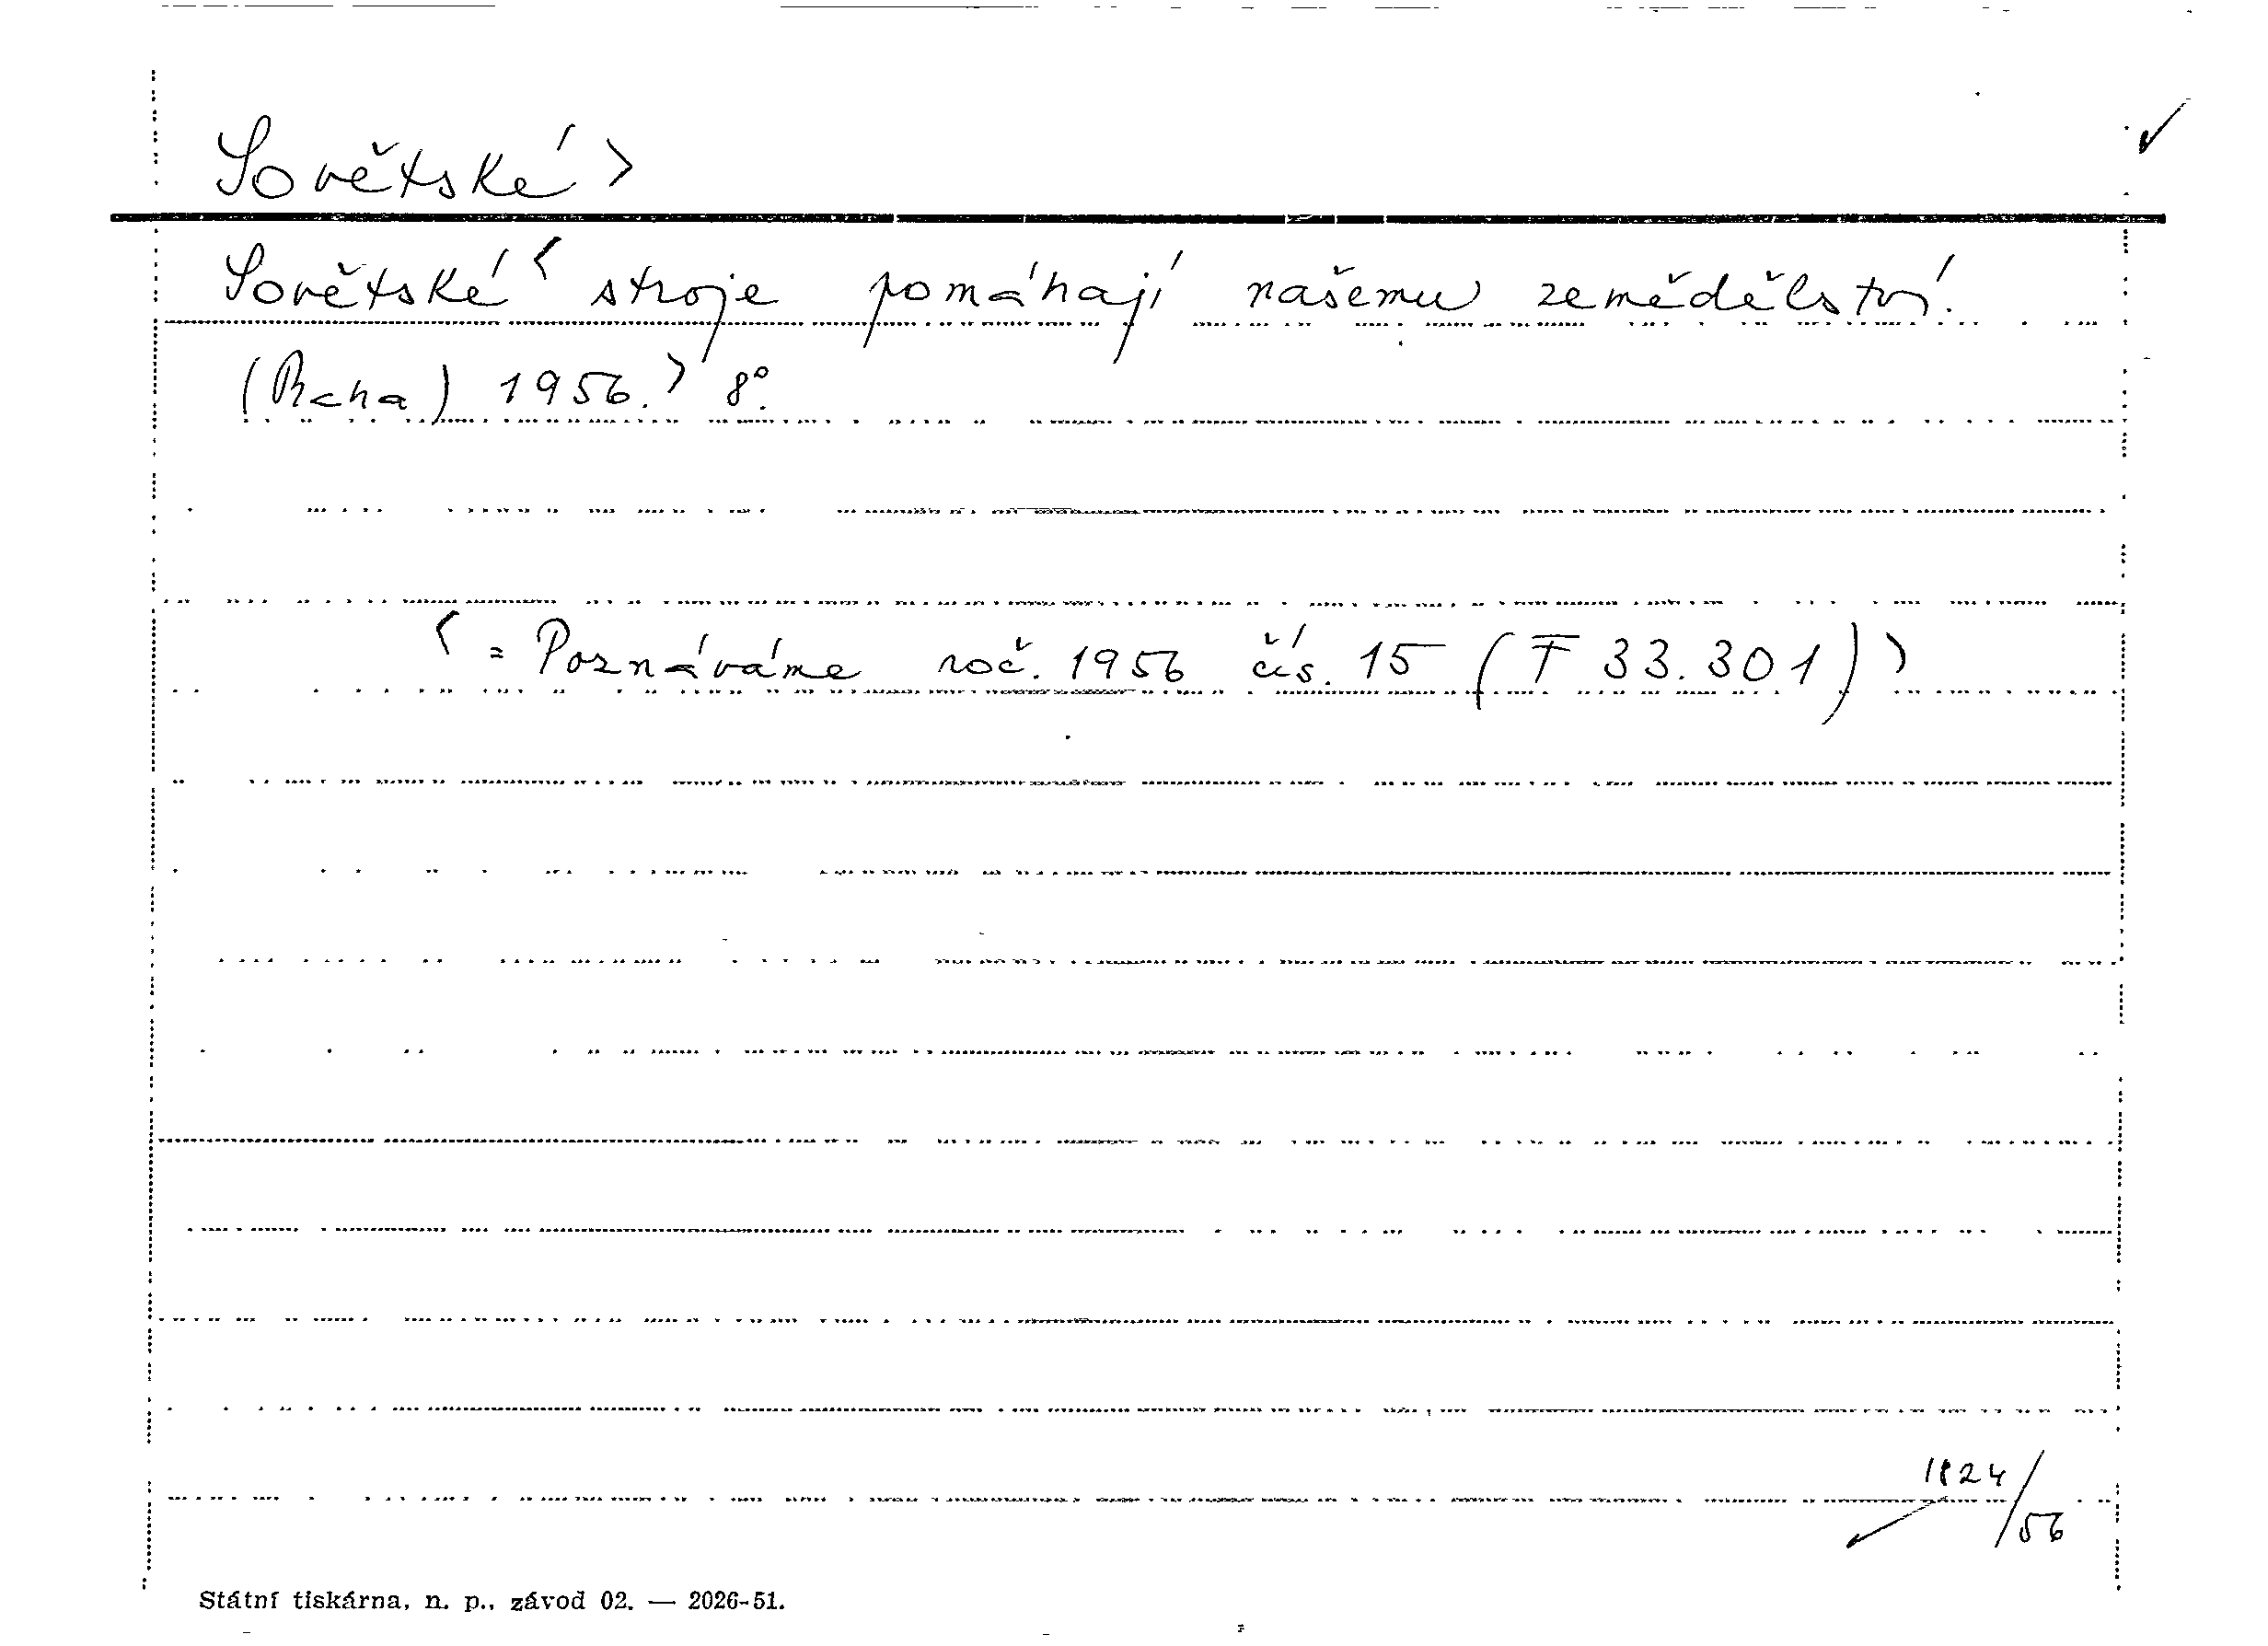 Sovětské >
Sovětské < stroje pomáhají našemu zemědělství.
(Praha) 1956. > 8°.
< = Poznáváme roč. 1956 čís. 15 (F 33.301) >
1824/56
Státní tiskárna, n. p., závod 02. — 2026-51.